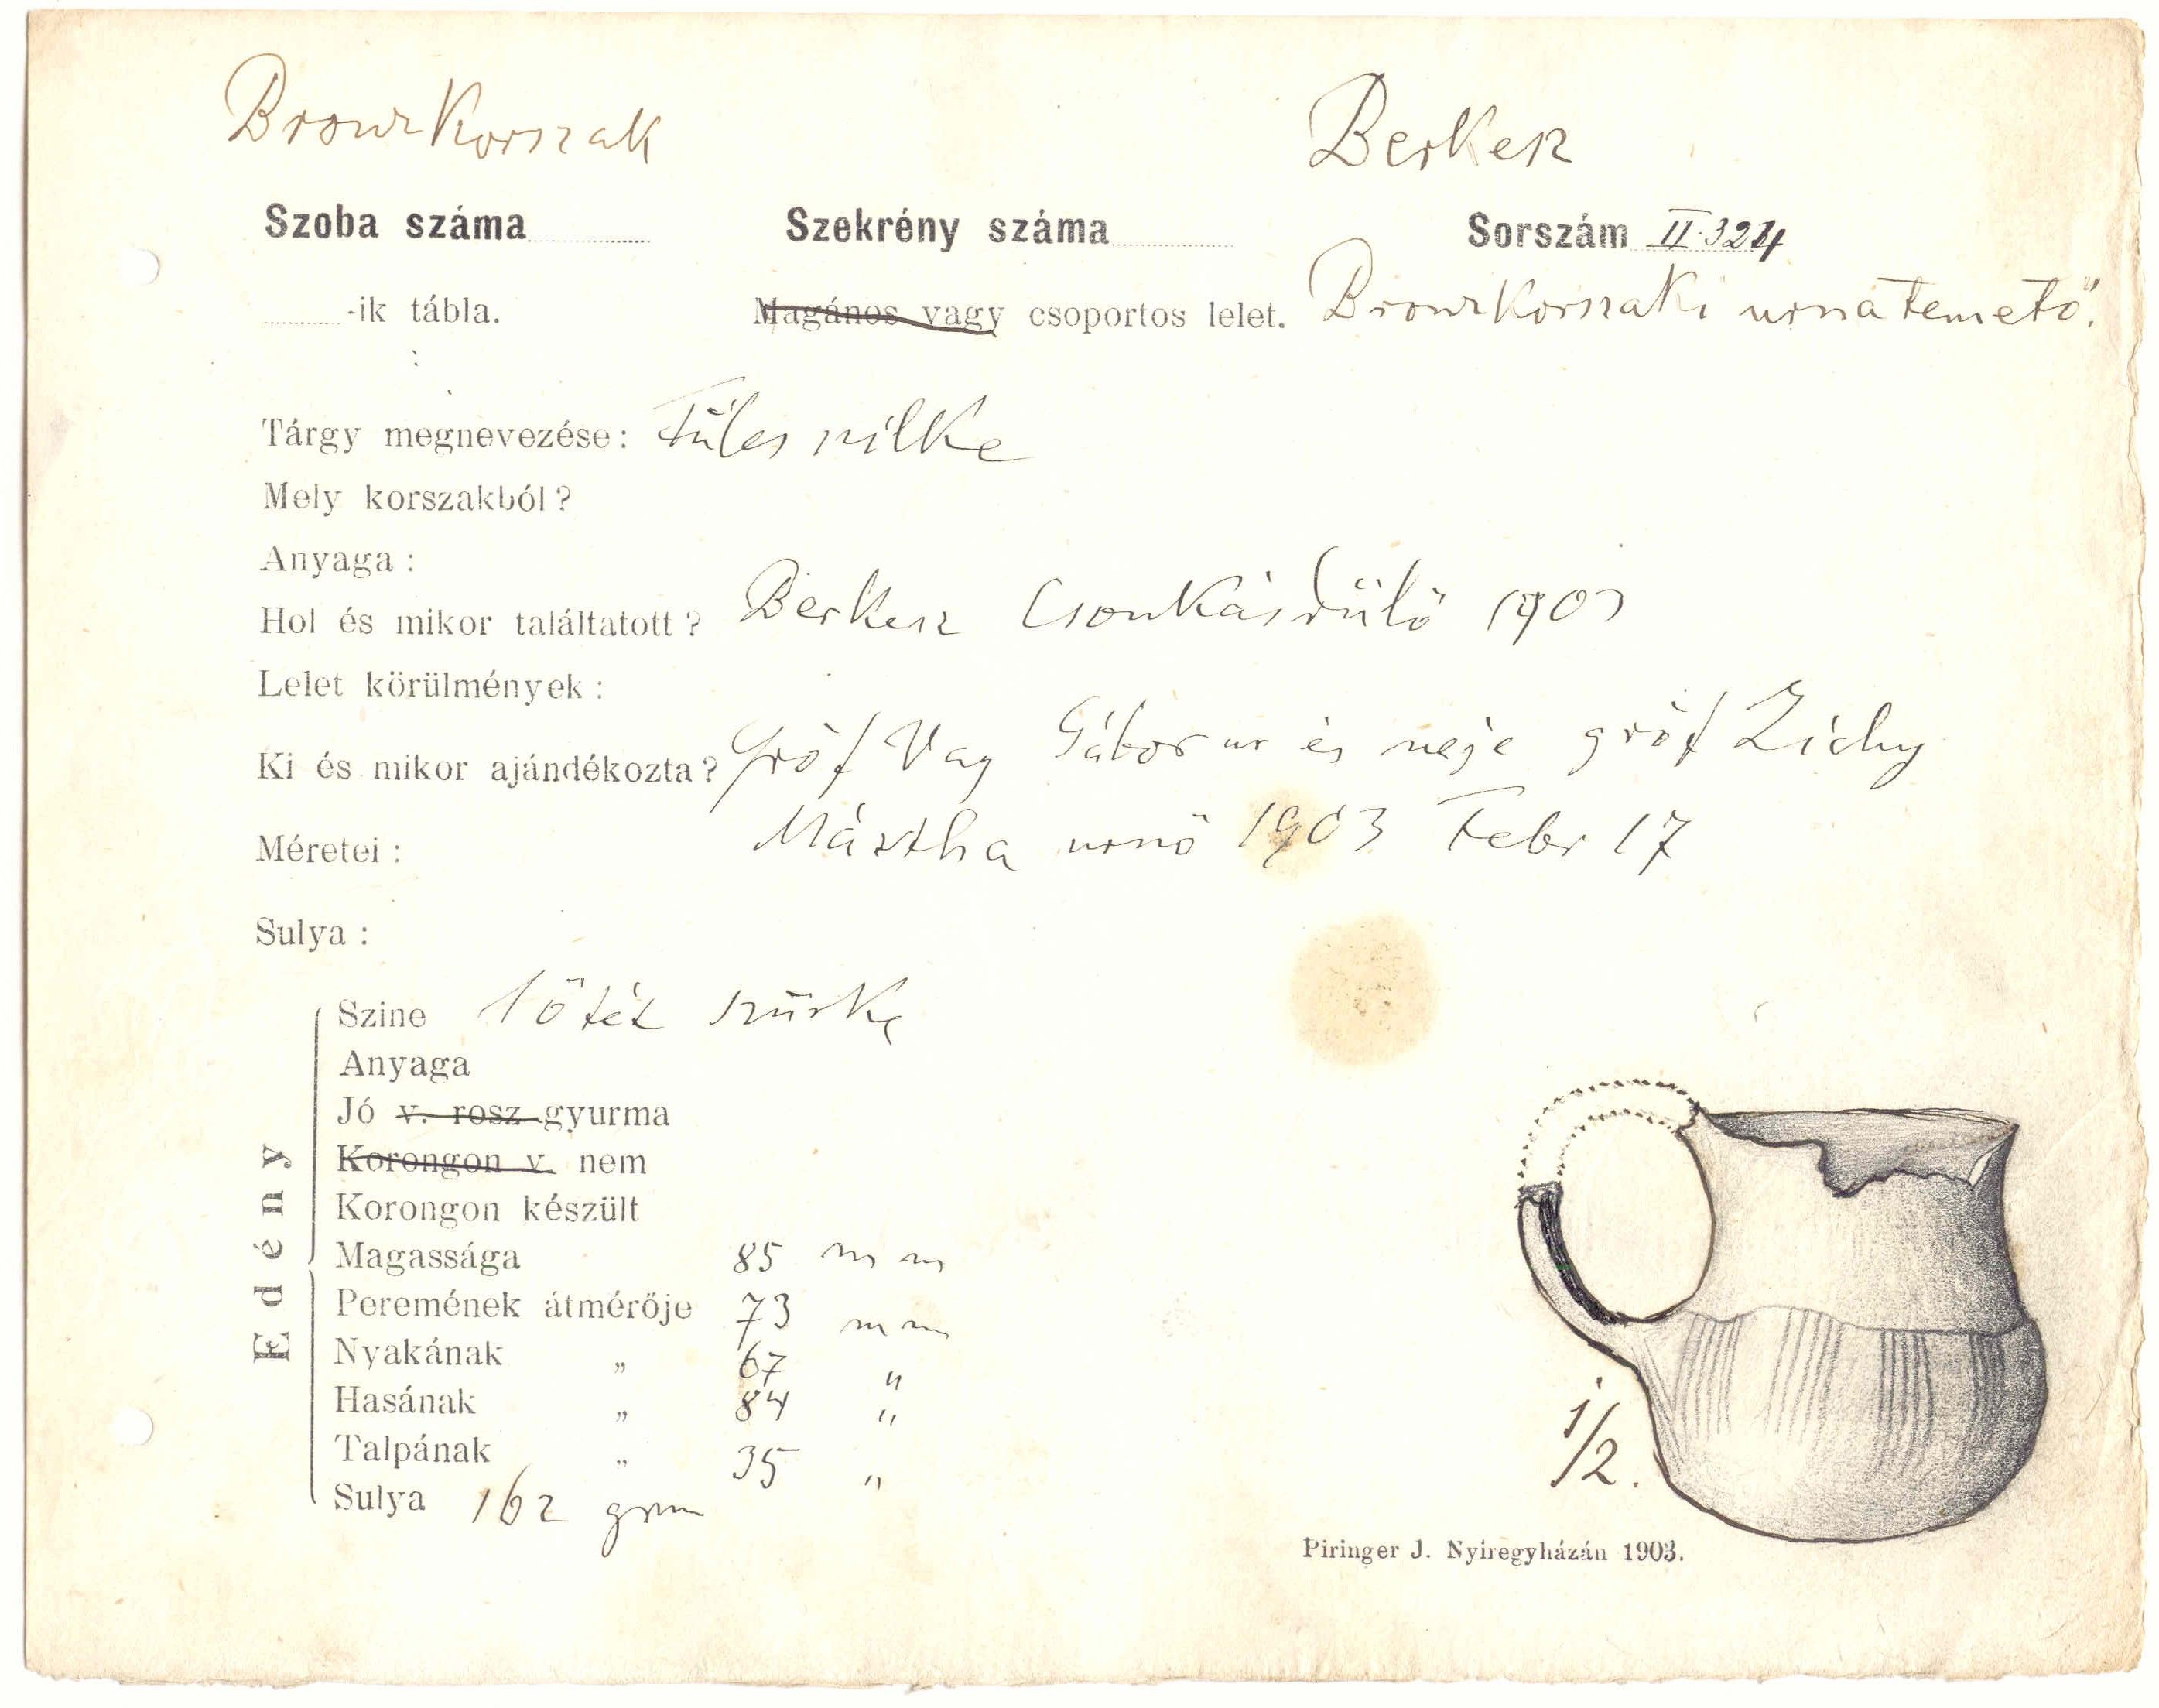 Bronzkorszak
Berkesz
Szoba száma
Szekrény száma
Sorszám II.324
-ik tábla.
Magános vagy csoportos lelet. Bronzkorszaki urnatemető.
Tárgy megnevezése: Füles szilke
Mely korszakból?
Anyaga:
Hol és mikor találtatott? Berkesz Csonkásdülő 1903
Lelet körülmények:
Ki és mikor ajándékozta? Gróf Vay Gábor ur és neje gróf Zichy
Mártha urnő 1903 Febr 17
Méretei:
Sulya:
Edény
Szine Sötét szürke
Anyaga
Jó v. rosz gyurma
Korongon v. nem
Korongon készült
Magassága 85 mm
Peremének átmérője 73 mm
Nyakának „ 67 „
Hasának „ 84 „
Talpának „ 35 „
Sulya 162 grm
1/2.
Piringer J. Nyiregyházán 1903.